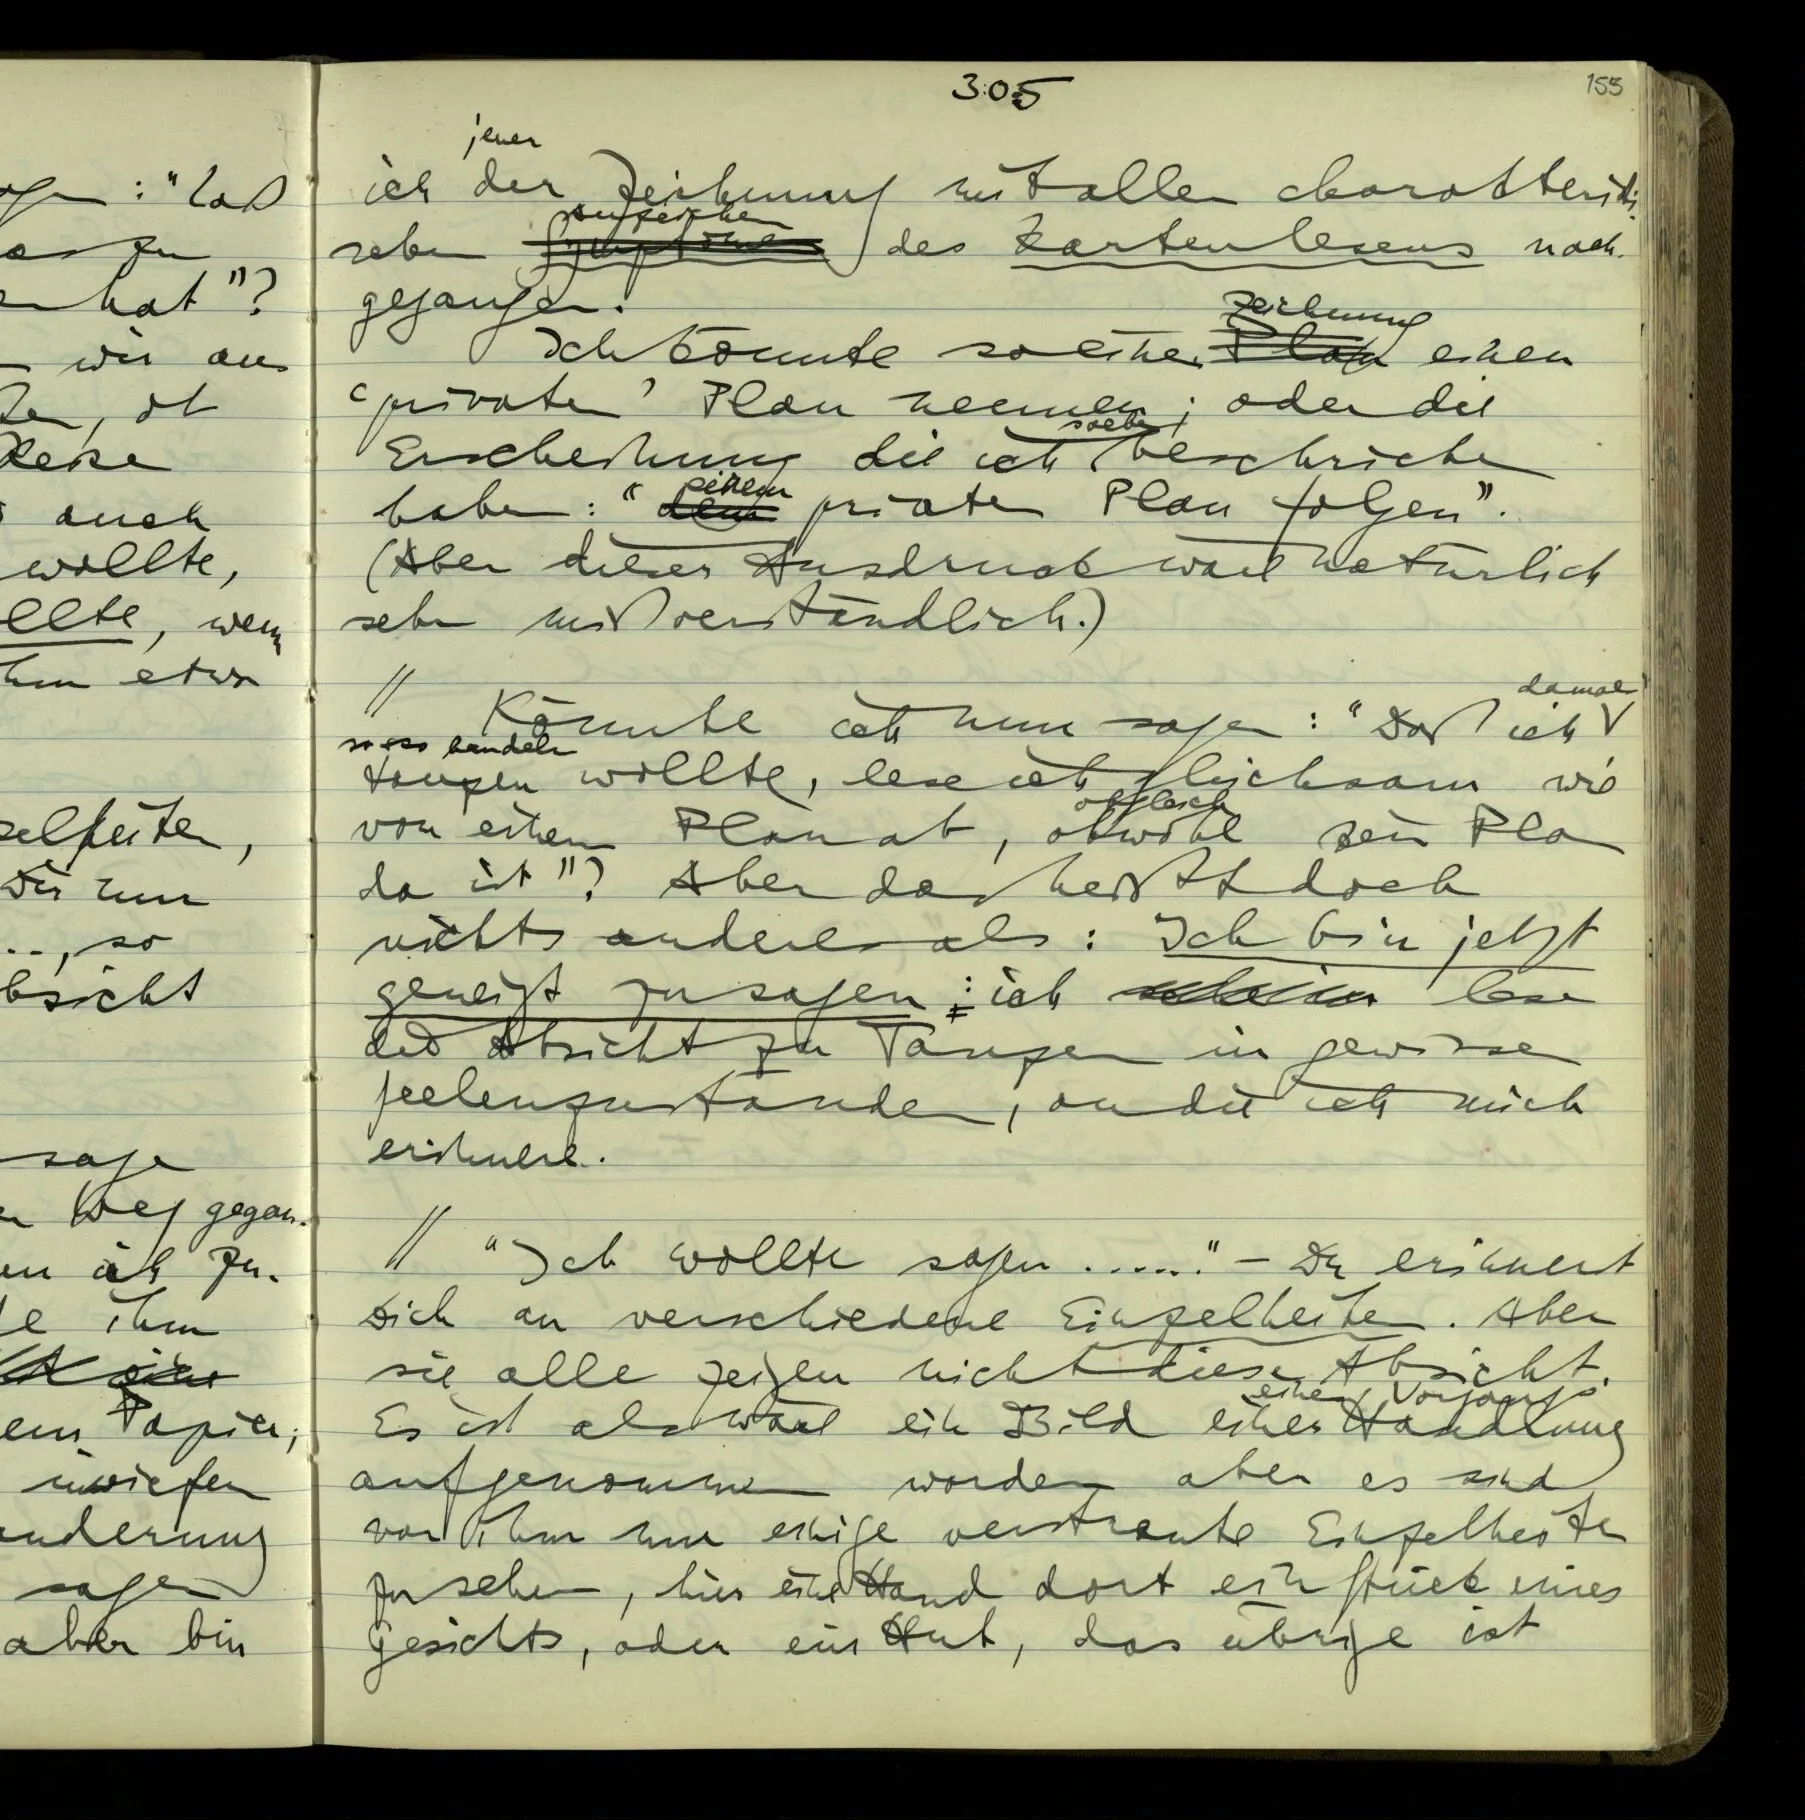 305
155
gen : "Laß
as zu
er hat"?
wir aus
, ob
Reise
auch
wollte,
ollte, wenn
ihm etwa
zelheiten,
Dir nun
..., so
bsicht
sage
n Weg gegan-
en ich zu-
e ihm
em Papier,
inwiefern
änderung
sagen
aber bin
jener
ich der Zeichnung mit allen charakteristi-
anzeichen
schen Symptomen des Kartenlesens nach-
gegangen.
Zeichnung
Ich könnte so eine Plan einen
'privaten' Plan nennen; oder die
soeben
Erscheinung die ich beschrieben
einem
habe: "dem privaten Plan folgen".
(Aber dieser Ausdruck wäre natürlich
sehr mißverständlich.)
damals
// Könnte ich nun sagen: "Daß ich
so & so handeln
tanzen wollte, lese ich gleichsam wie
obgleich
von einem Plan ab, obwohl kein Plan
da ist"? Aber das heißt doch
nichts anderes als: Ich bin jetzt
geneigt zu sagen: ich scheine lese
die Absicht zu Tanzen in gewissen
Seelenzuständen, an die ich mich
erinnere.
// "Ich wollte sagen ......" – Du erinnerst
Dich an verschiedene Einzelheiten. Aber
sie alle zeigen nicht diese Absicht.
eines Vorgangs
Es ist als wäre ein Bild einer Handlung
aufgenommen worden aber es sind
von ihm nur einige verstreute Einzelheiten
zu sehen, hier eine Hand dort ein Stück eines
Gesichts, oder ein Hut, das übrige ist